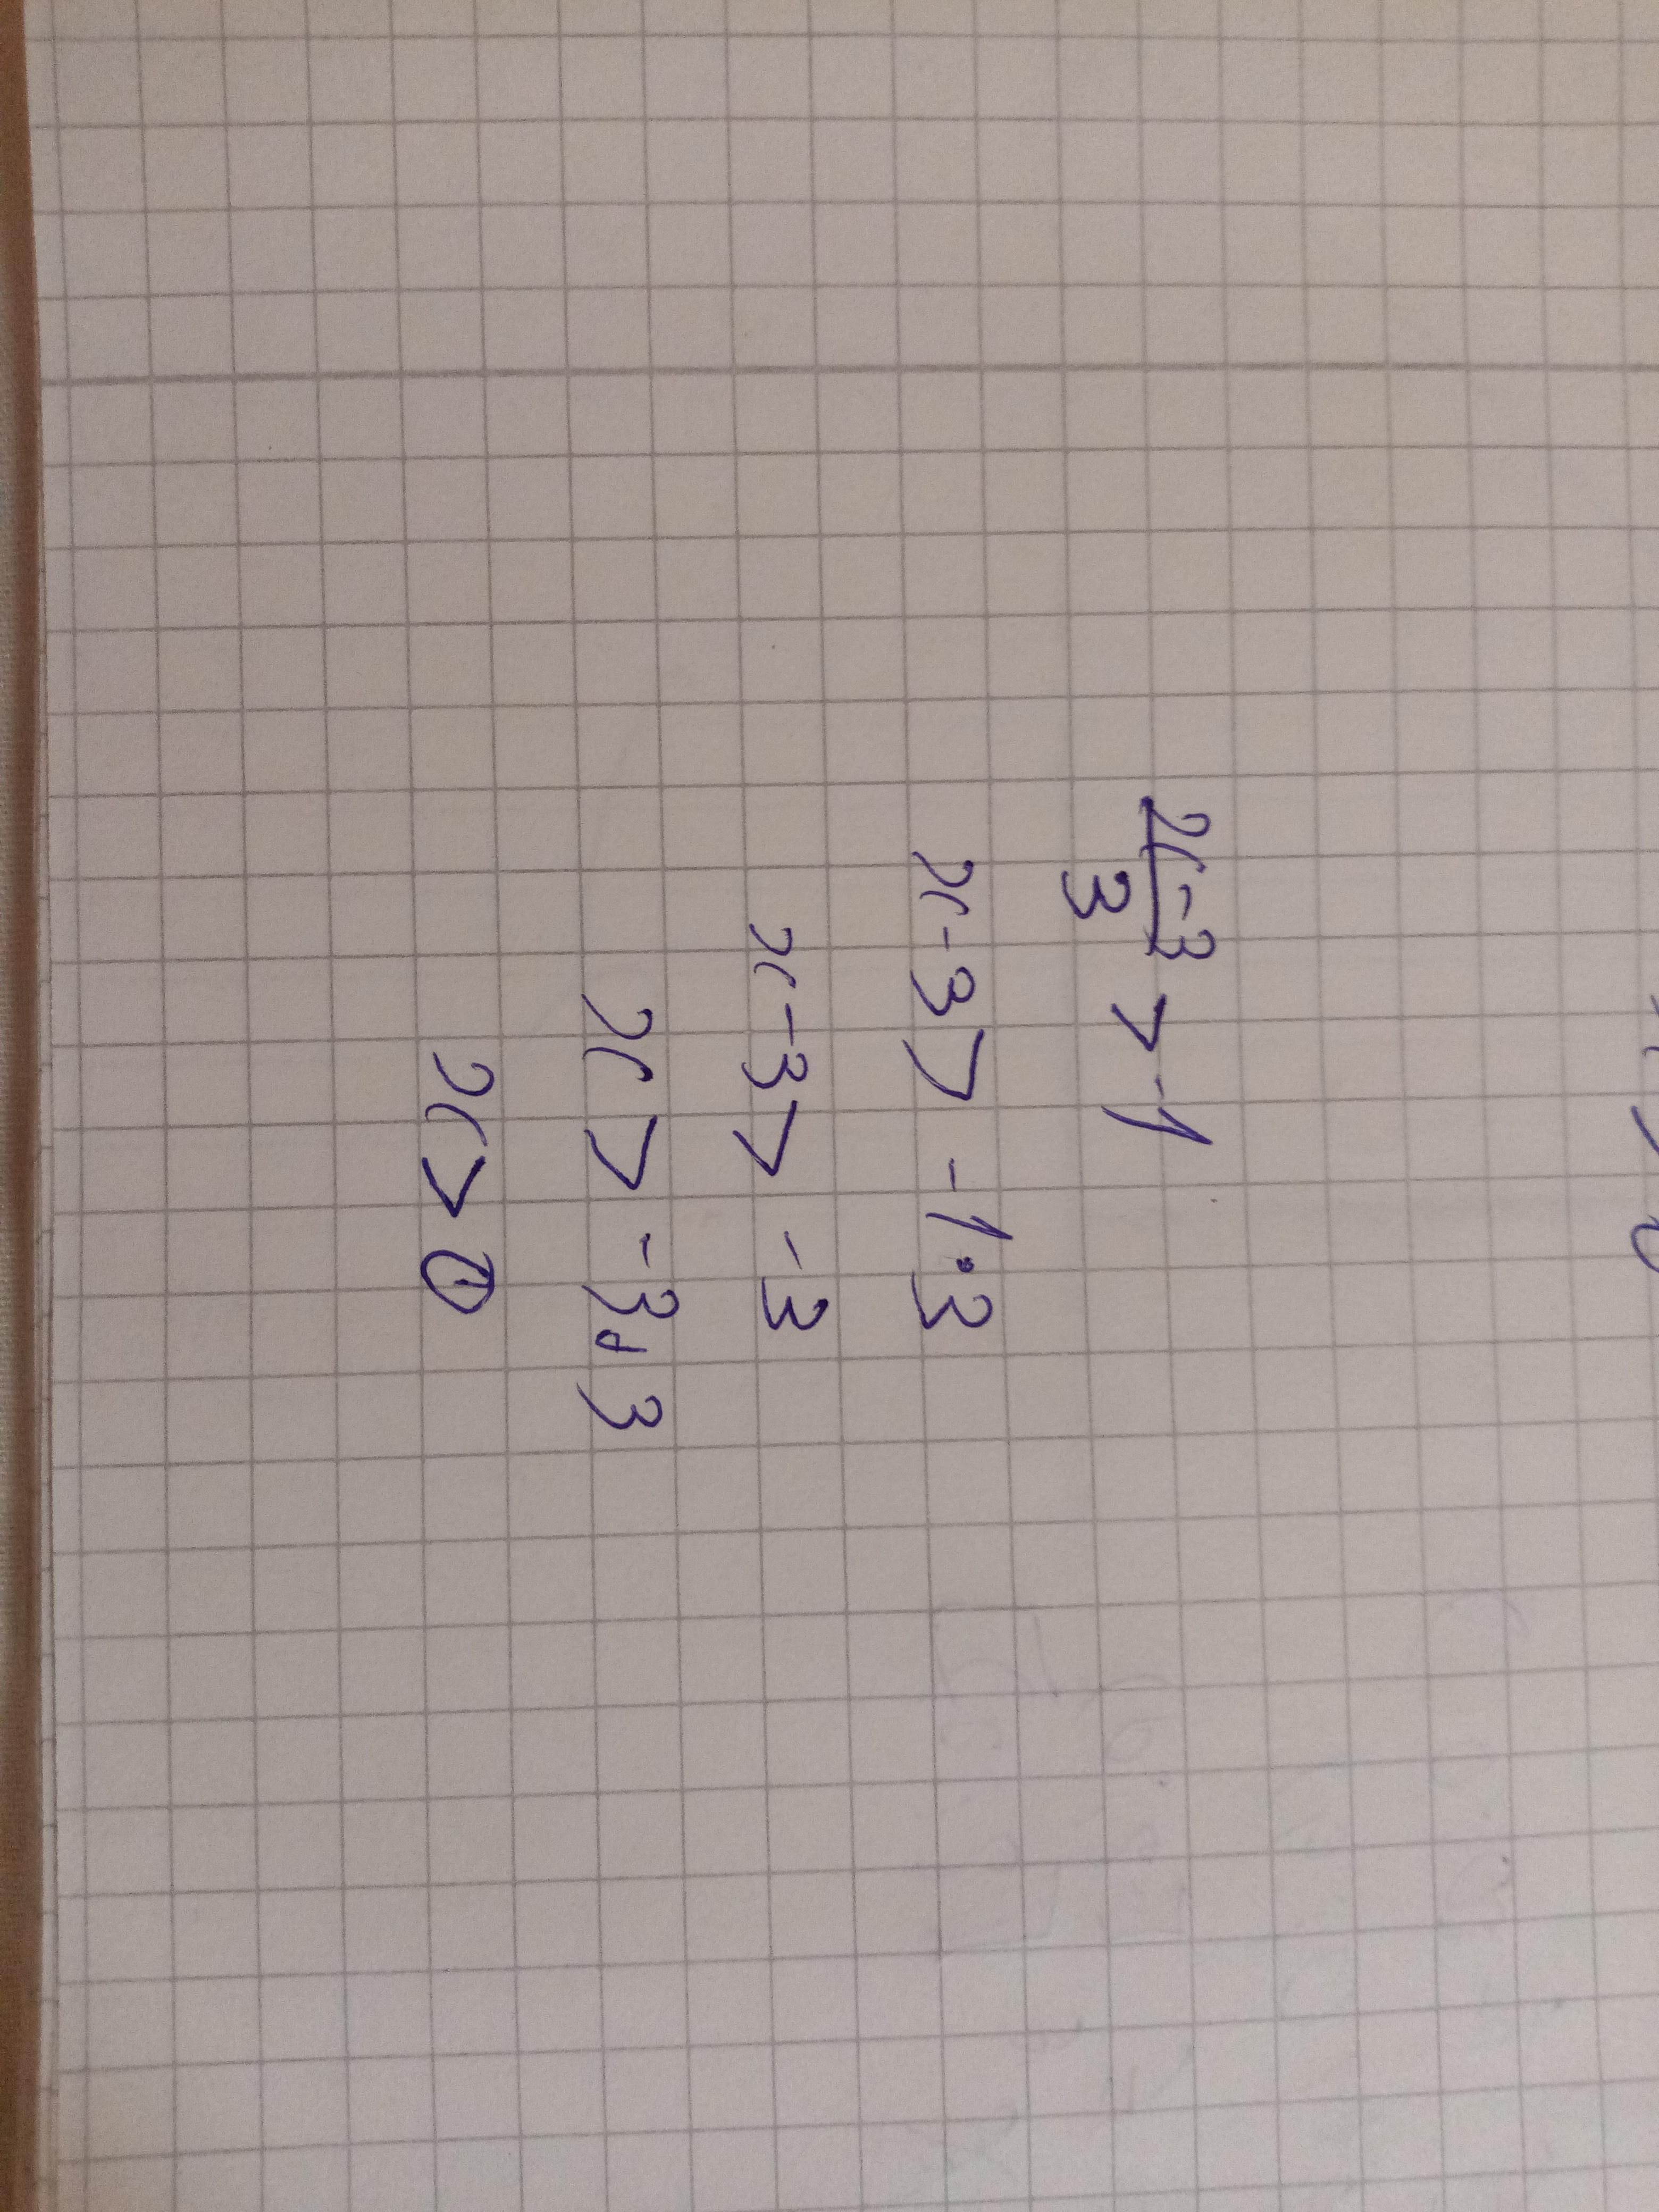 x-3/3 > -1
x-3 > -1·3
x-3 > -3
x > -3+3
x > 0